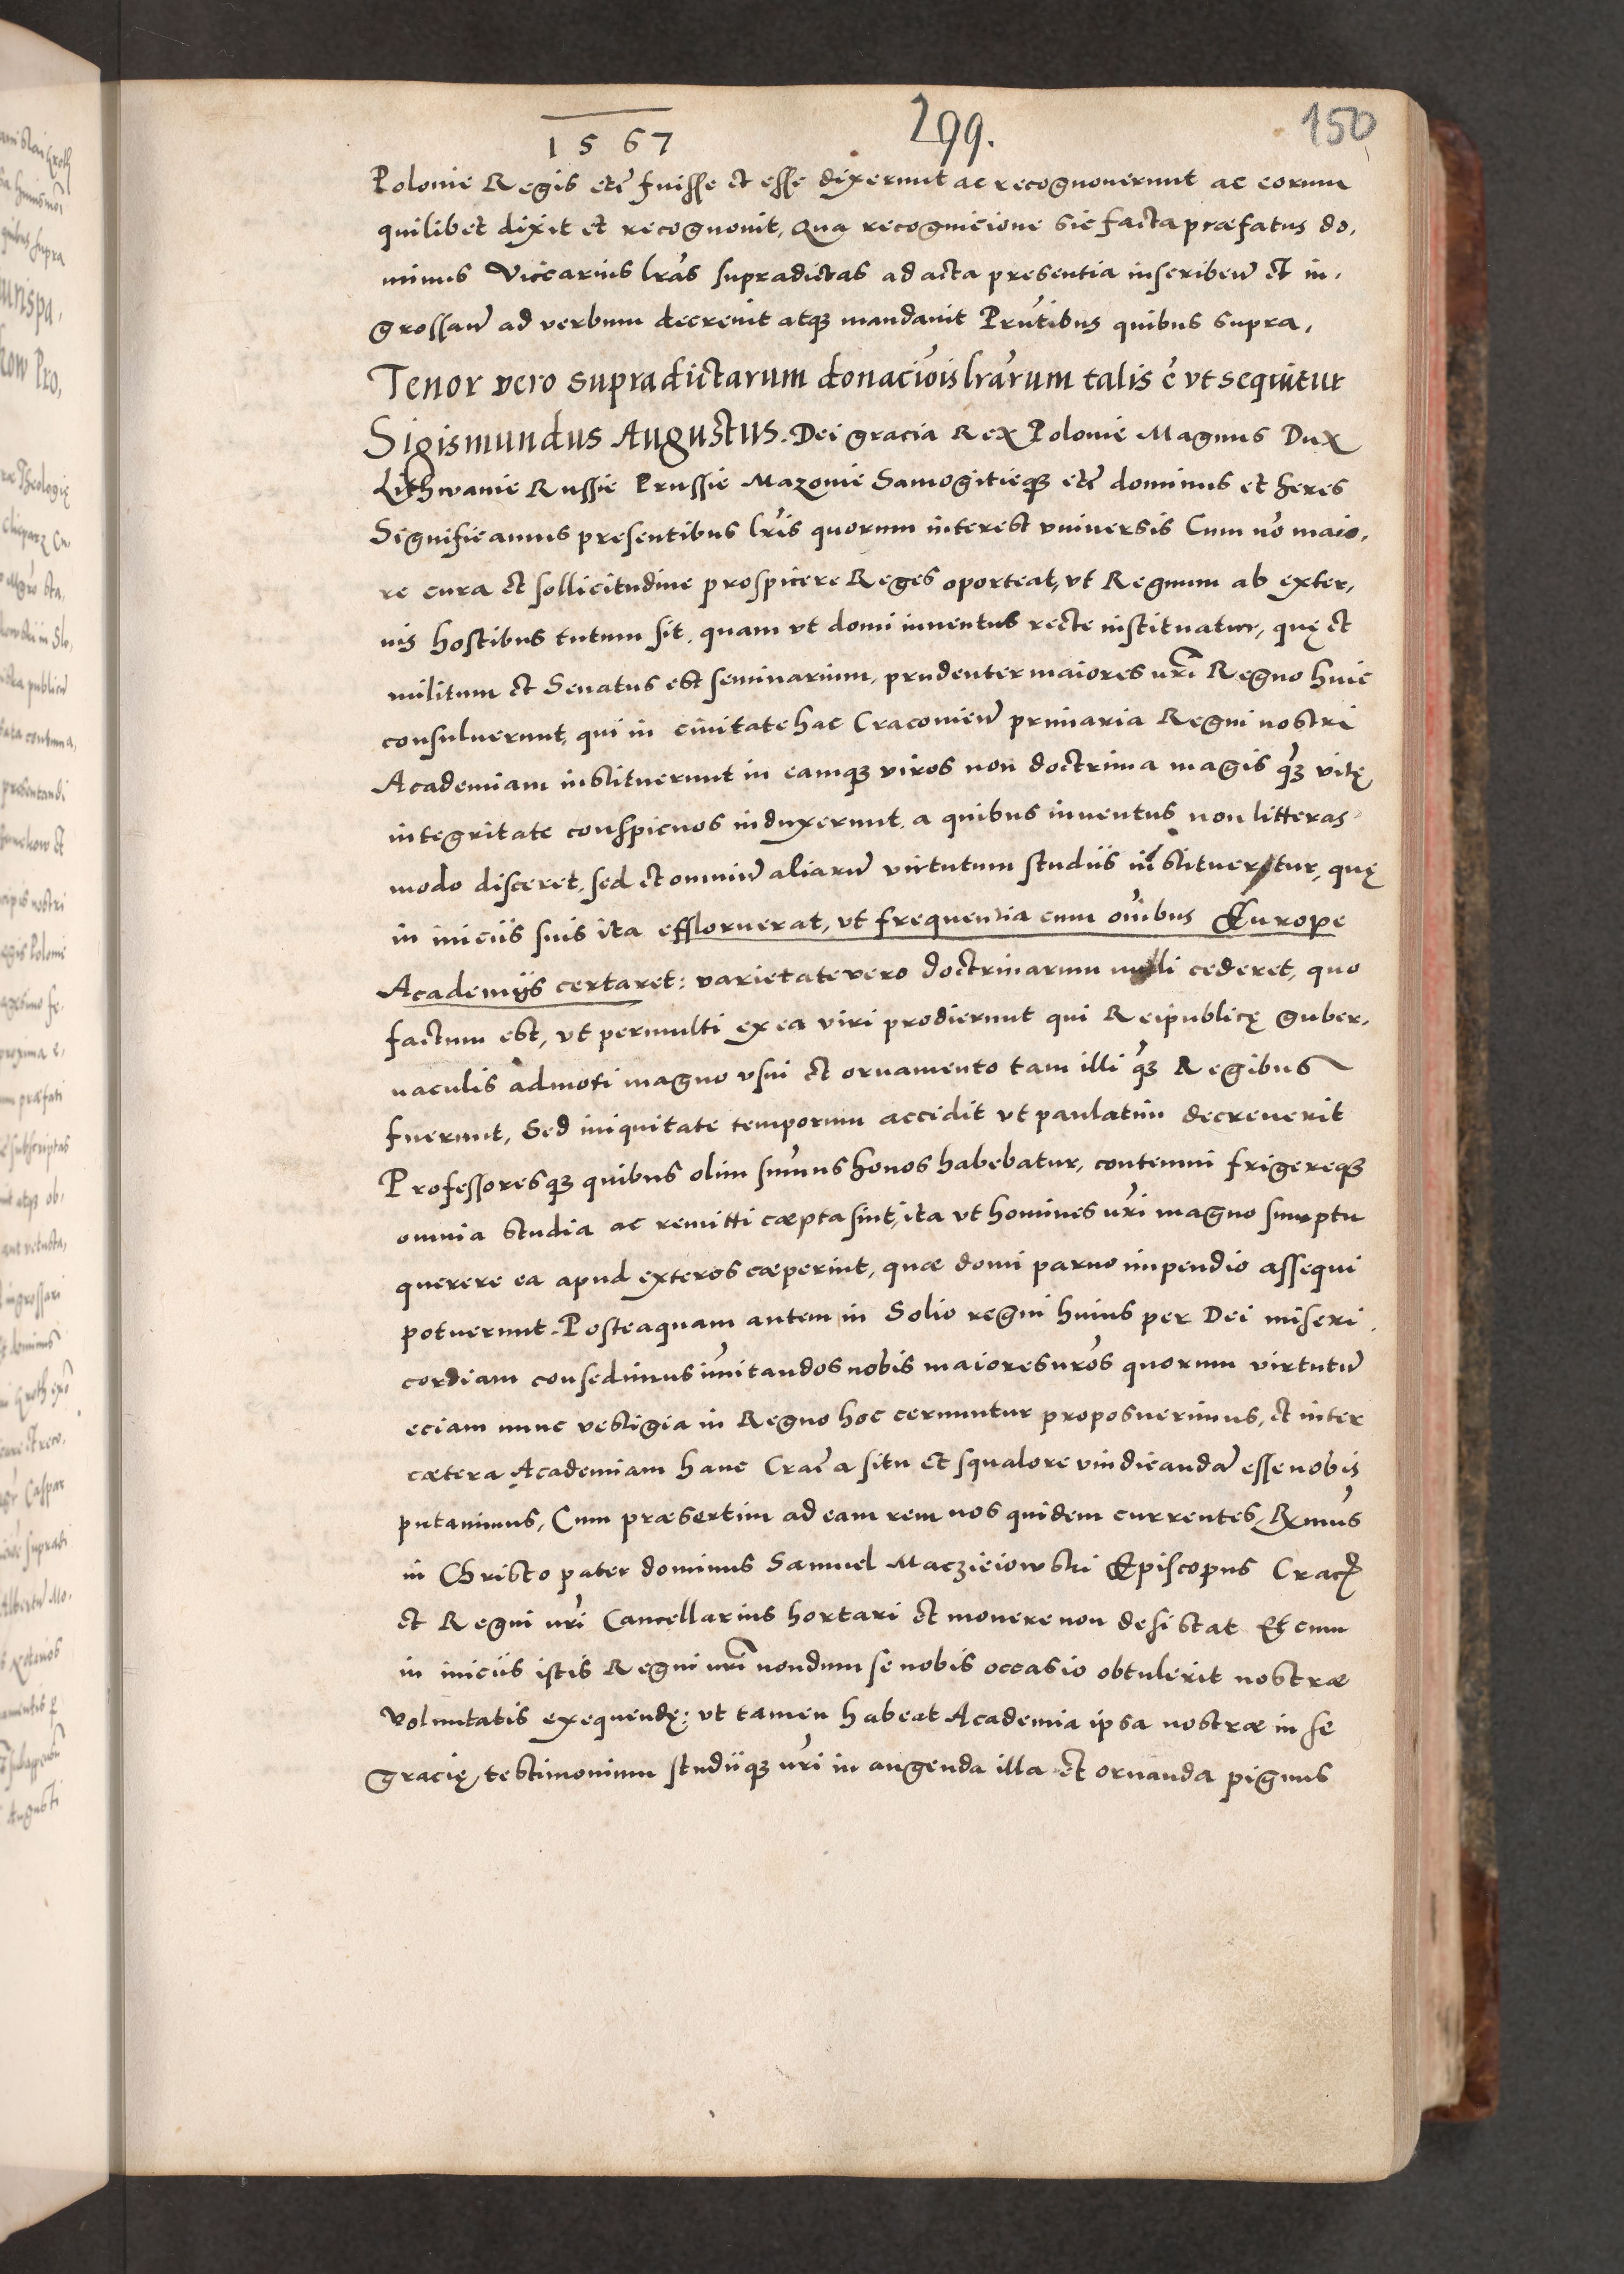 1567 299. 150
Polonie Regis etc̃ fuisse et esse dixerunt ac recognouerunt ac eorum
quilibet dixit et recognouit, Qua recognicione sic facta præfatus do,
minus Vicearius lrãs supradictas ad acta presentia inscribeñ et in,
grossañ ad verbum decreuit atqȝ mandauit Prñtibus quibus supra,
Tenor vero supradictarum donaciõis lrãrum talis ẽ vt sequitur
Sigismundus Augustus. Dei gracia Rex Polonie Magnus Dux
Lithwanie Russie Prussie Mazouie Samogitieqȝ etc̃ dominus et heres
Significamus presentibus lrĩs quorum interest vniuersis Cum nõ maio,
re cura et sollicitudine prospicere Reges oporteat, vt Regnum ab exter,
nis hostibus tutum sit, quam vt domi iuuentus recte instituatur, quę et
militum et Senatus est seminarium, prudenter maiores nrĩ Regno huic
consuluerunt, qui in ciuitate hac Cracouieñ primaria Regni nostri
Academiam instituerunt in eamqȝ viros non doctrina magis q̃ȝ vitę
integritate conspicuos induxerunt, a quibus iuuentus non litteras
modo disceret, sed et omniũ aliarũ virtutum studiis institueretur, quę
in iniciis suis ita effloruerat, vt frequentia cum oĩbus Europe
Academijs certaret: varietate vero doctrinarum nulli cederet, quo
factum est, vt permulti ex ea viri prodierunt qui Reipublicę guber,
naculis admoti magno vsui et ornamento tam illi q̃ȝ Regibus
fuerunt, Sed iniquitate temporum accidit vt paulatim decreuerit
Professoresqȝ quibus olim sum̃us honos habebatur, contemni frigereqȝ
omnia studia ac remitti cæpta sint, ita vt homines nrĩ magno sumptu
querere ea apud exteros cæperint, quæ domi paruo impendio assequi
potuerunt. Posteaquam autem in Solio regni huius per Dei miseri,
cordiam consedimus im̃itandos nobis maiores nrõs quorum virtutũ
eciam nunc vestigia in Regno hoc cernuntur proposuerimus, et inter
cætera Academiam hanc Crac̃ a situ et squalore vindicandã esse nobis
putauimus, Cum præsertim ad eam rem nos quidem currentes, Rm̃us
in Christo pater dominus Samuel Maczieiowski Episcopus Crac̃
et Regni nrĩ Cancellarius hortari et monere non desistat Et cum
in iniciis istis Regni nrĩ nondum se nobis occasio obtulerit nostræ
voluntatis exequendę: vt tamen habeat Academia ipsa nostræ in se
gracię, testimonium studiiqȝ nrĩ in augenda illa et ornanda pignus